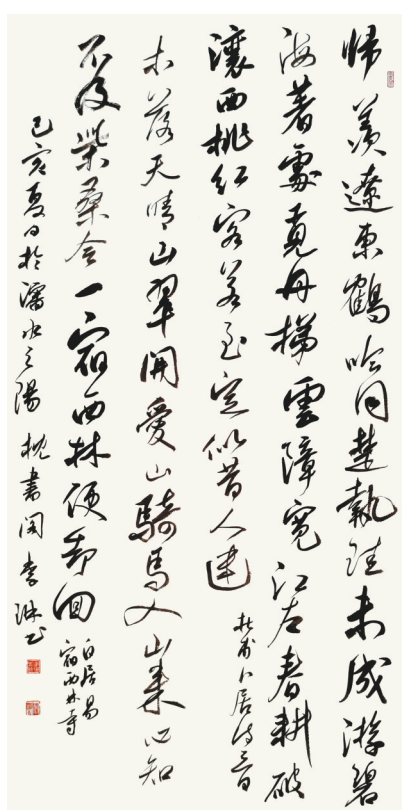 歸羨遼東鶴吟同楚執珪未成游碧
海著處覓丹梯雲障寬江左春耕破
瀼西桃紅客若至定似昔人迷
杜甫卜居詩一首
木落天晴山翠開愛山騎馬入山來心知
不及柴桑令一宿西林便却回
白居易
宿西林寺
己亥夏日於瀋水之陽枕書閣李琳書